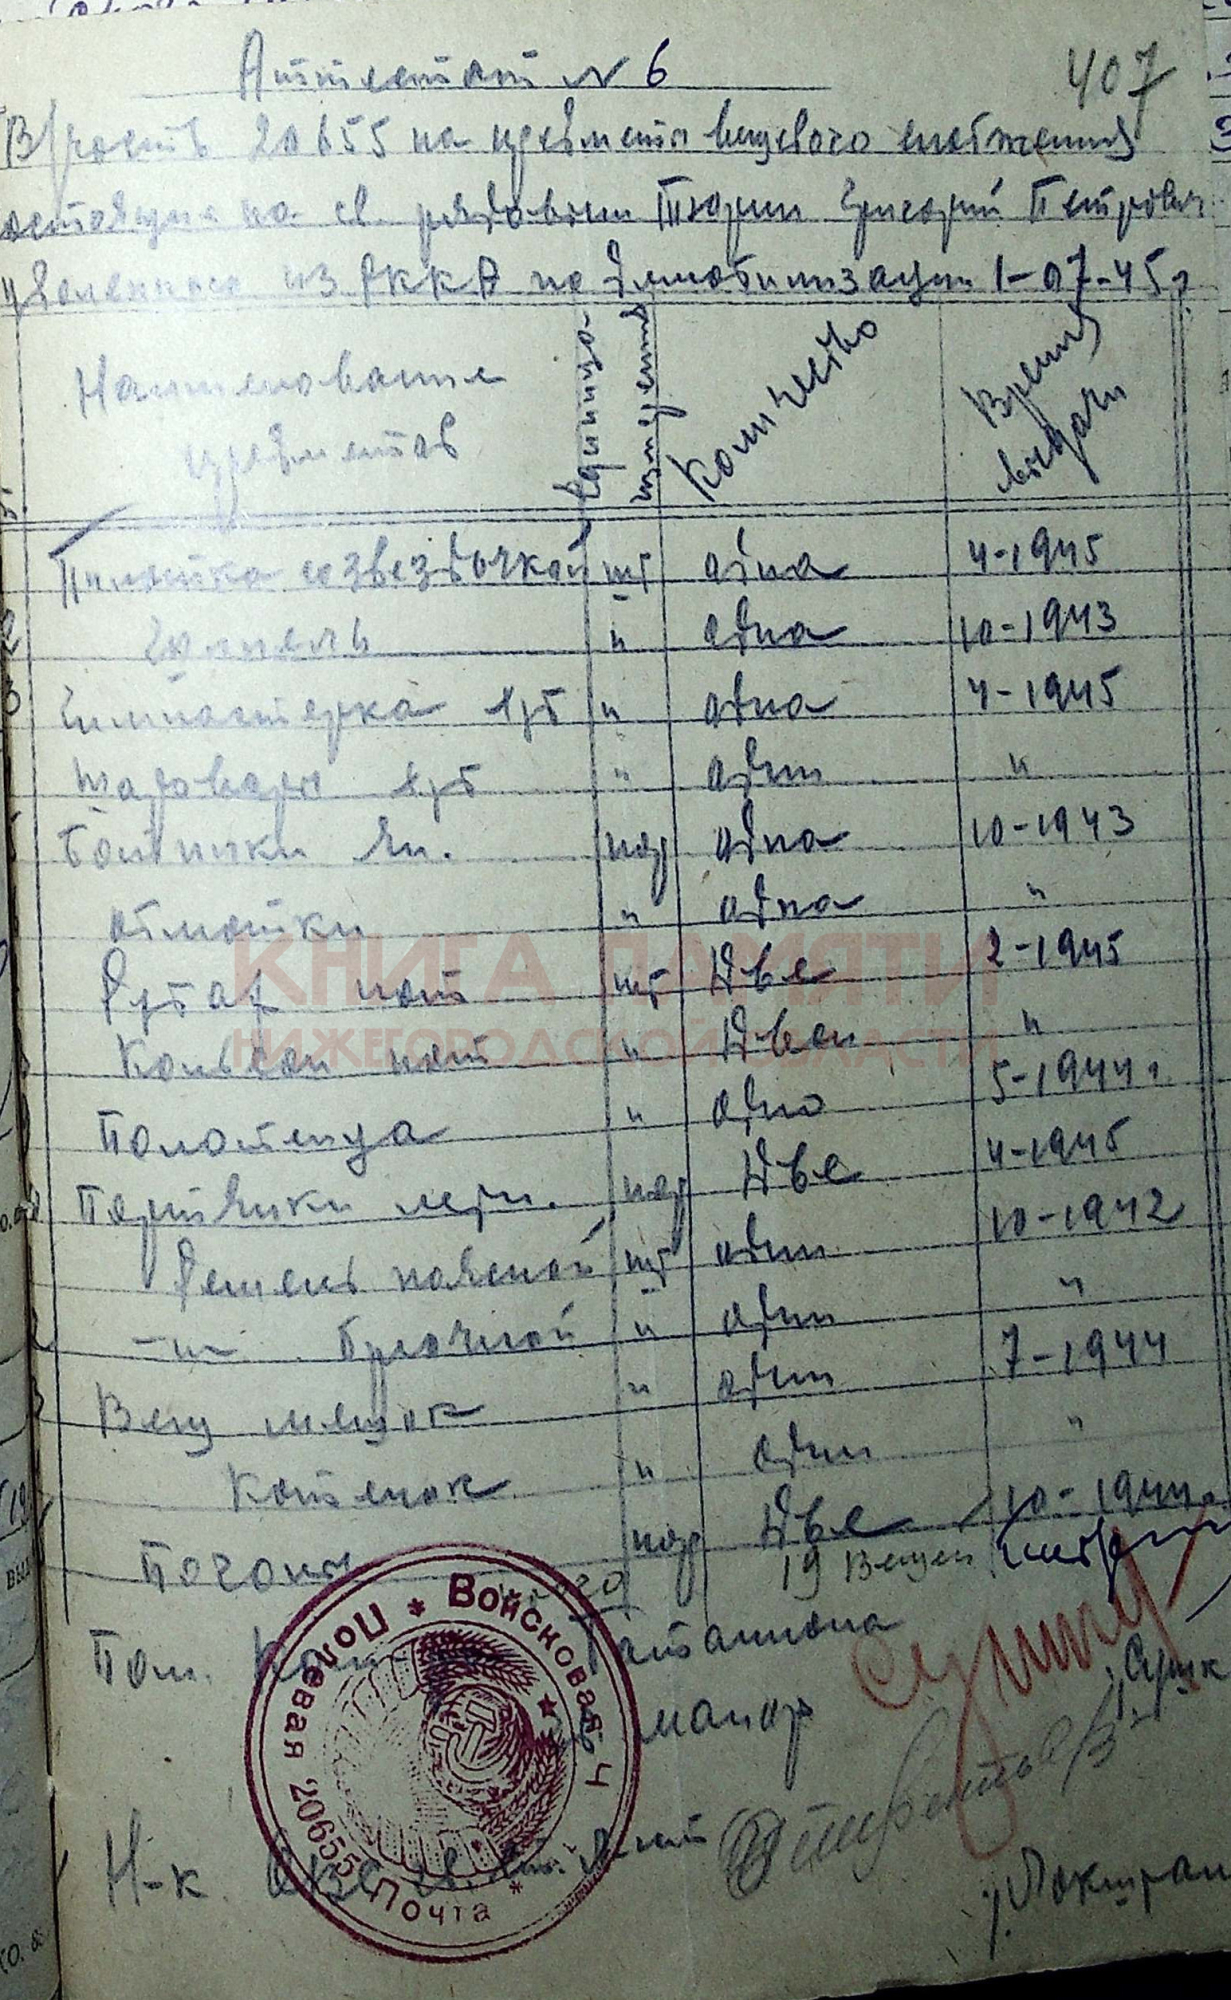 Аттестат № 6
407
В/часть 20655 на предметы вещевого снабжения
состоящие на гв. рядовым Тюрин Григорий Петрович
уволенного из РККА по демобилизации 1-07-45г.
Наименование предметов единица измерения Количество Время выдачи
Пилотка со звездочкой шт одна 4-1945
Шинель " одна 10-1943
Гимнастерка х/б " одна 4-1945
Шаровары х/б " один "
Ботинки пар одна 10-1943
Обмотки " одна "
Рубах нат шт Две 2-1945
Кальсон нат " Двои "
Полотенца " одно 5-1944г.
Портянки летн. пар Две 4-1945
Ремень поясной шт один 10-1942
-"- брючной " один "
Вещ мешок " один 7-1944
Котелок " один "
Погоны пар Две 10-1944г.
19 Вещей
Пом. батальона
майор
Н-к. ОВС
Войсковая ч * Полевая Почта * 20655
КНИГА ПАМЯТИ
НИЖЕГОРОДСКОЙ ОБЛАСТИ